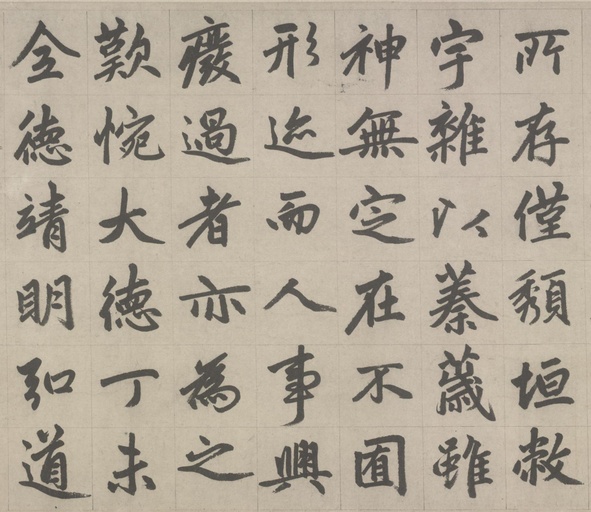 所存僅頹垣敝
宇雜以蓁薉雖
神無定在不囿
形迹而人事興
癈過者亦為之
歎惋大德丁未
全德靖明弘道